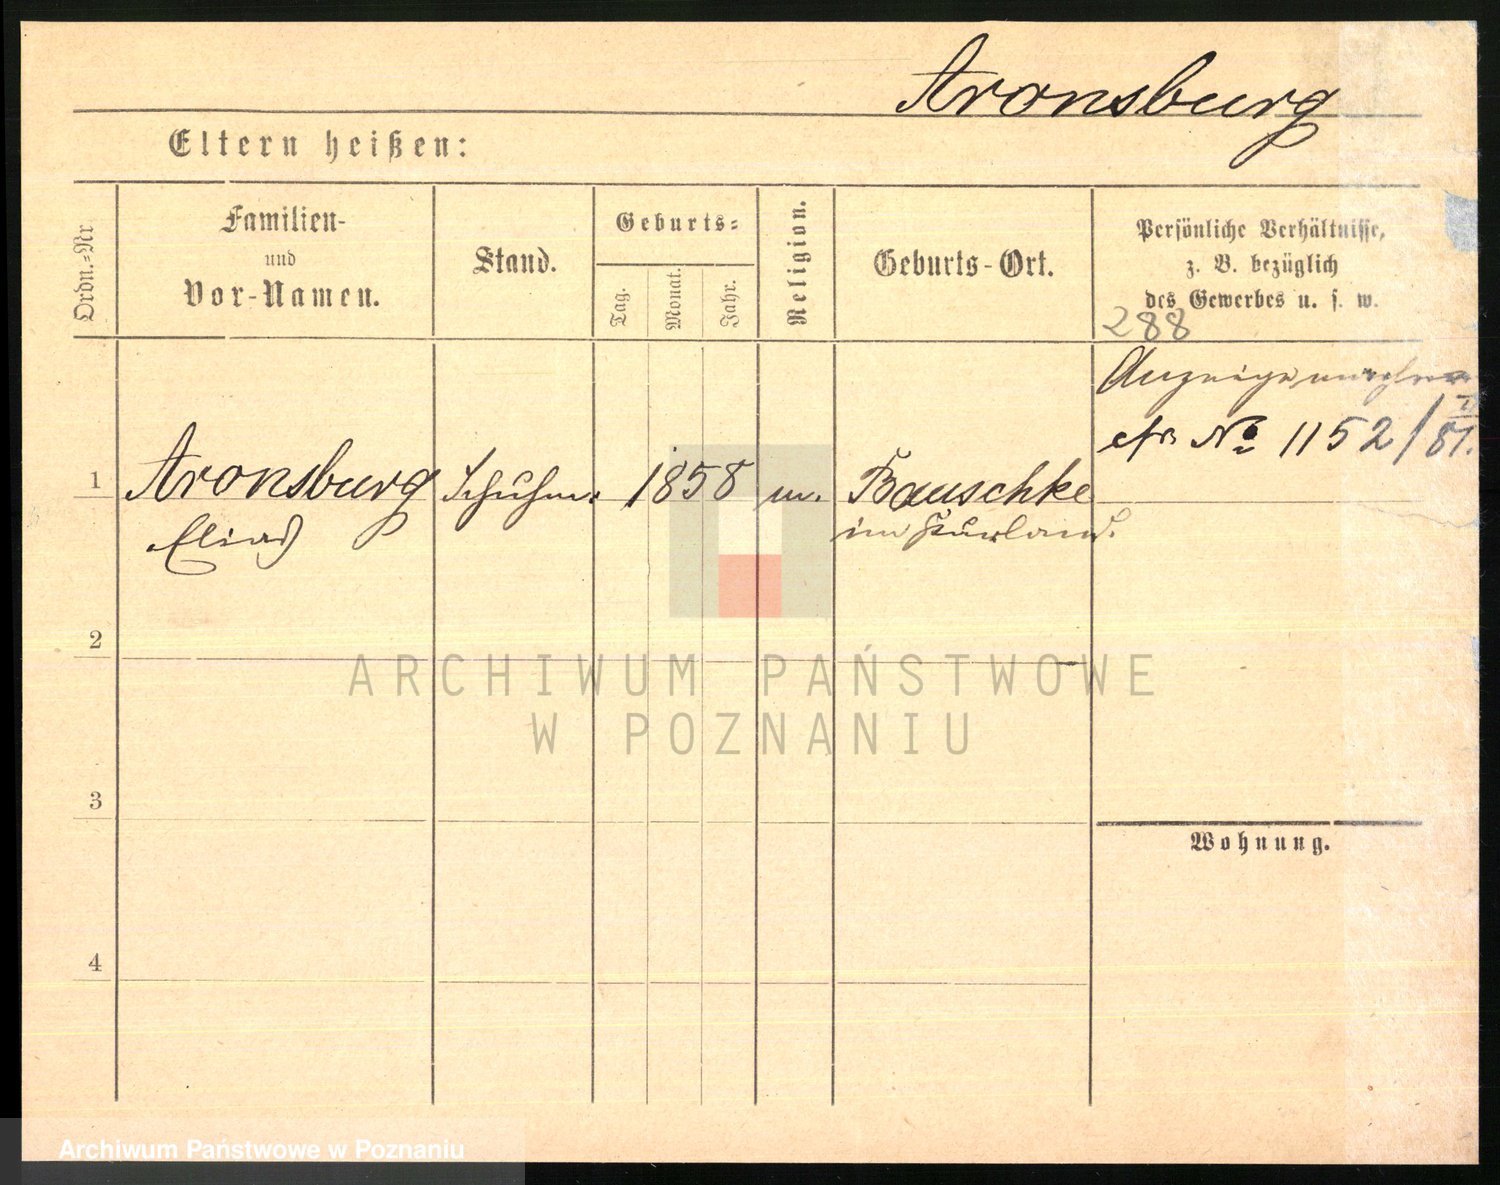 Aronsburg
Eltern heißen:
Ordn.-Nr
Familien-
und
Vor-Namen.
Stand.
Geburts-
Tag.
Monat.
Jahr.
Religion.
Geburts-Ort.
Persönliche Verhältnisse,
z. B. bezüglich
des Gewerbes u. s. w.
288
cfr No 1152/81.
1
Aronsburg
Elias
Schuhm.
1858
m.
Bauschke
in Kurland.
2
3
4
Wohnung.
ARCHIWUM PAŃSTWOWE
W POZNANIU
Archiwum Państwowe w Poznaniu